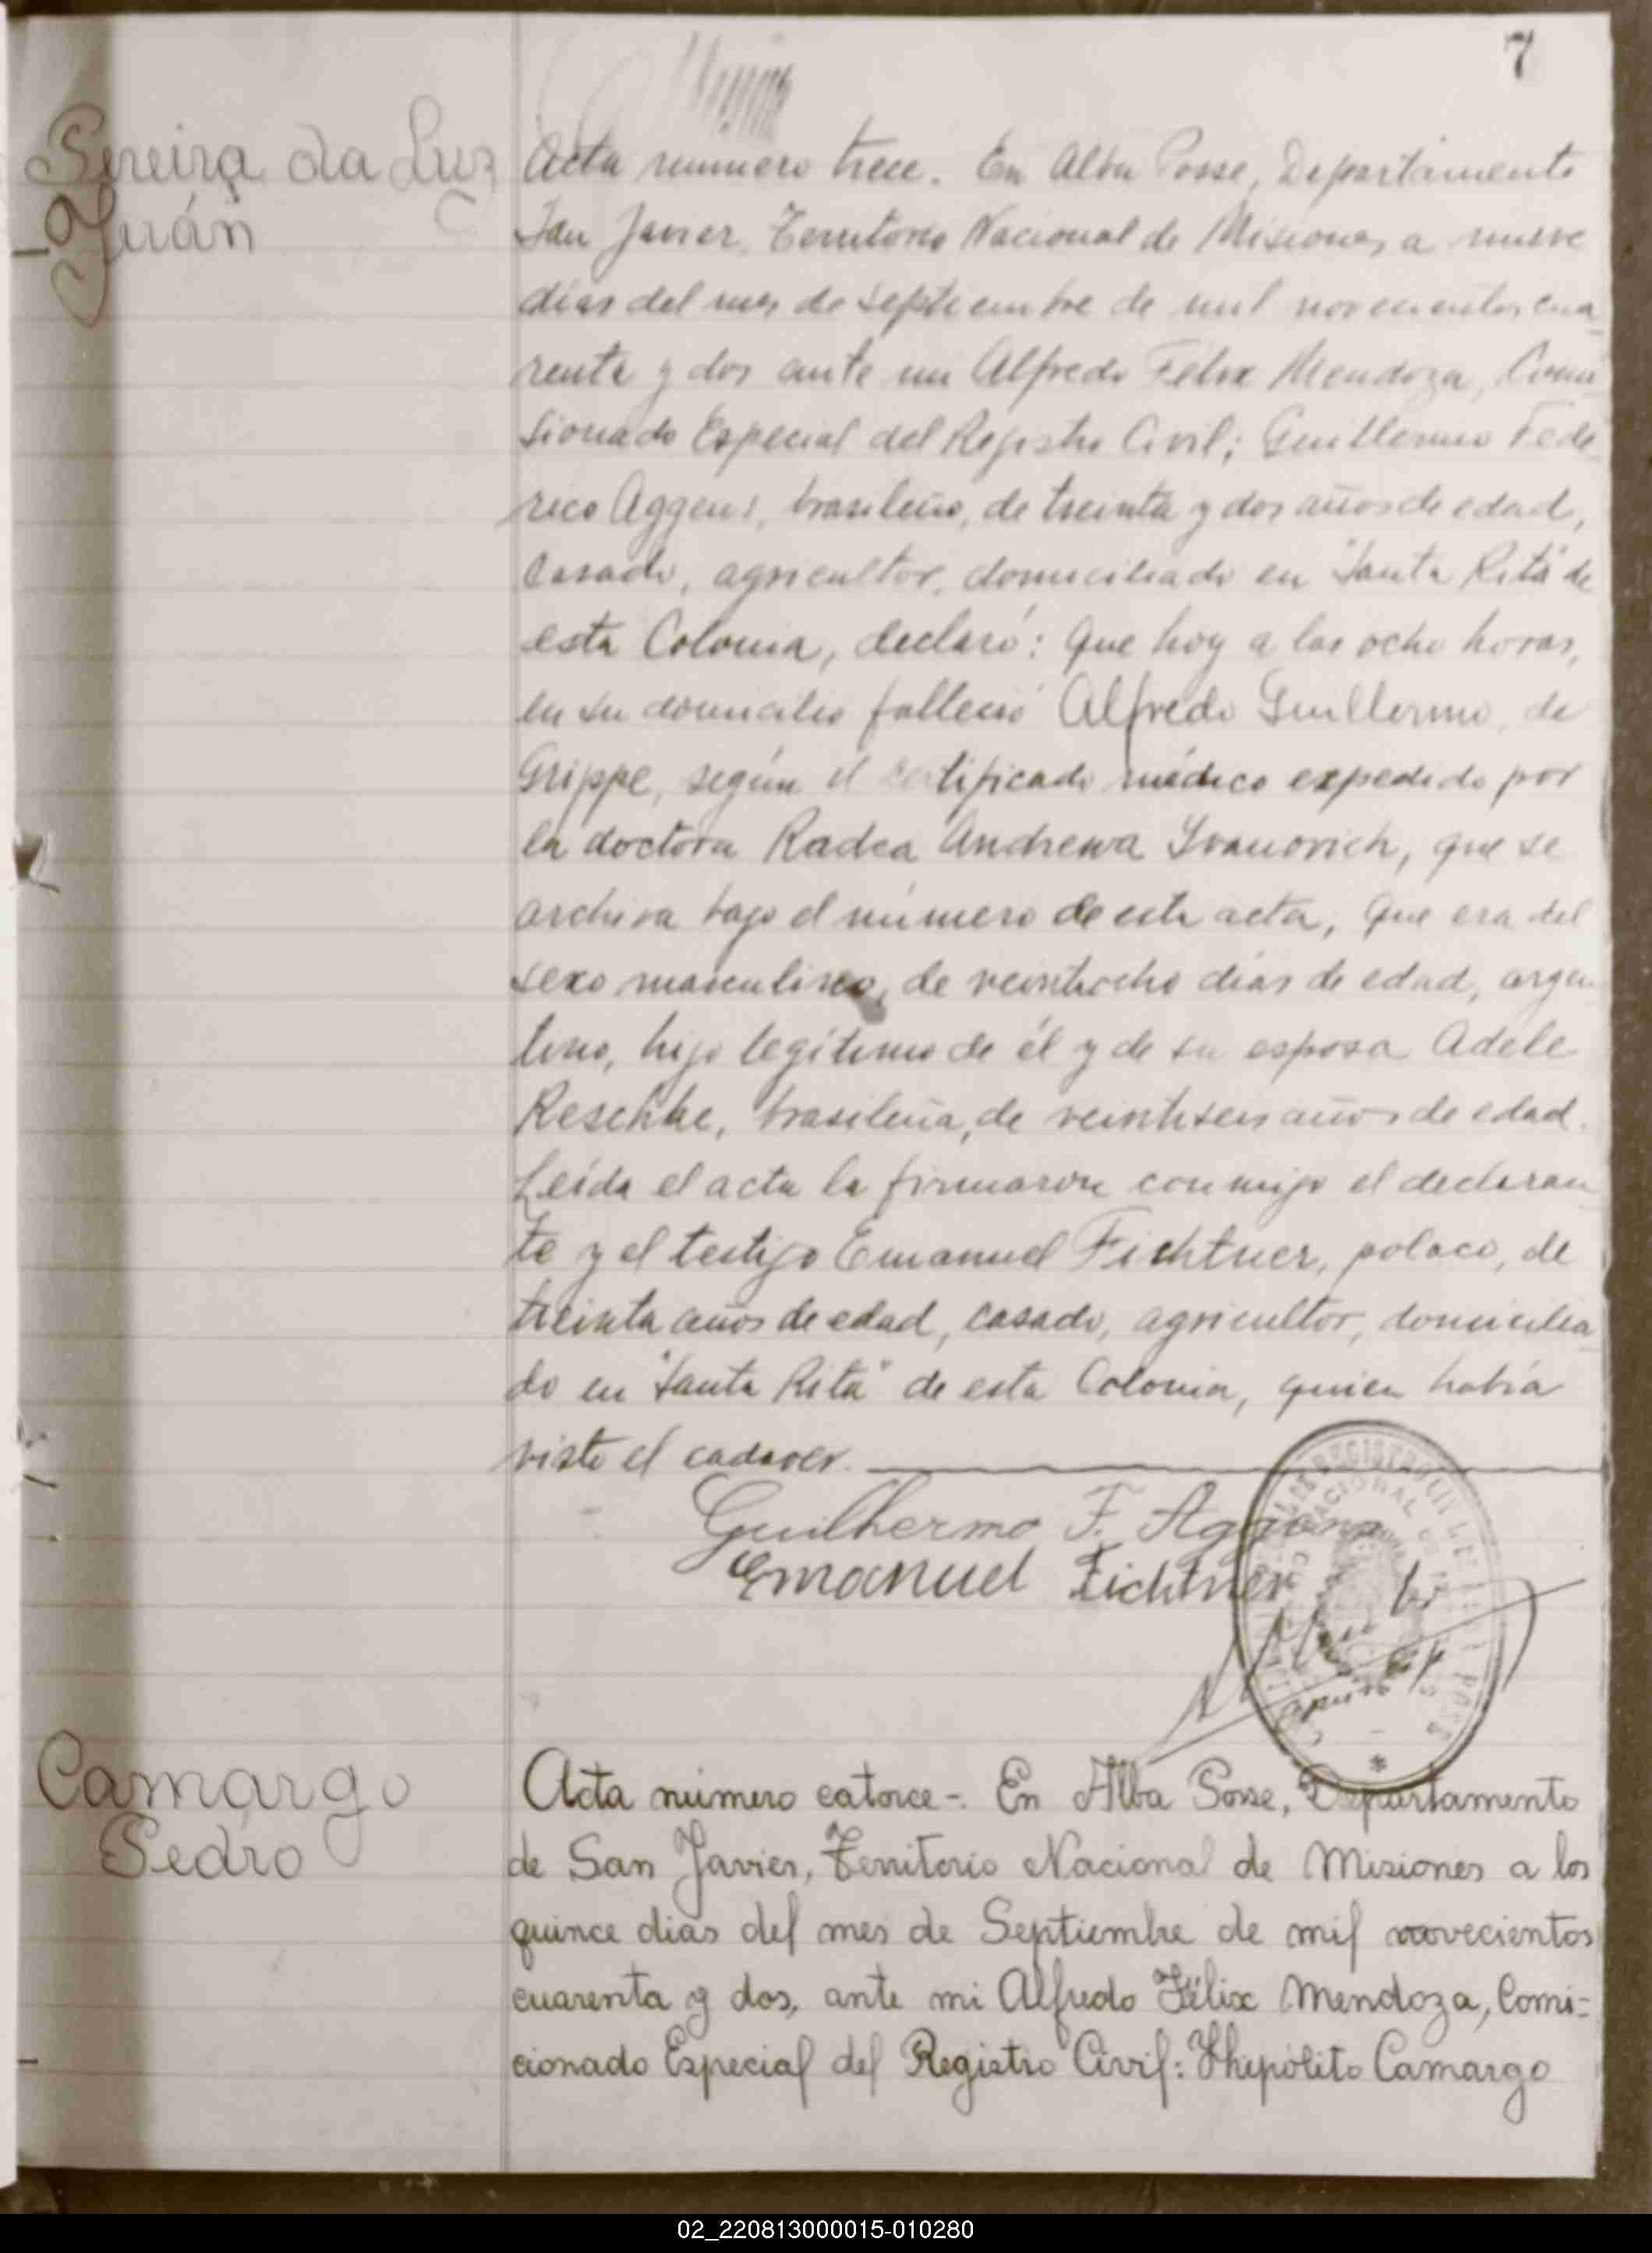 7
Pereira da Luz
Juán
Acta numero trece. En Alba Posse, Departamento
San Javier, Territorio Nacional de Misiones, a nueve
días del mes de septiembre de mil novecientos cua
renta y dos ante mi Alfredo Félix Mendoza, Comi
sionado Especial del Registro Civil; Guillermo Fede
rico Aggens, brasileño, de treinta y dos años de edad,
casado, agricultor, domiciliado en "Santa Rita" de
esta Colonia, declaró: Que hoy a las ocho horas,
en su domicilio falleció Alfredo Guillermo, de
Grippe, según el certificado médico expedido por
la doctora Radea Andrewa Ivanovich, que se
archiva bajo el número de esta acta, Que era del
sexo masculino, de veintiocho días de edad, argen
tino, hijo legítimo de él y de su esposa Adele
Reschke, brasileña, de veintiseis años de edad.
Leída el acta la firmaron conmigo el declaran
te y el testigo Emanuel Fichtner, polaco, de
treinta años de edad, casado, agricultor, domicilia
do en "Santa Rita" de esta Colonia, quien había
visto el cadaver.
Guilhermo F. Aggens
Emanuel Fichtner
Camargo
Pedro
Acta número catorce-. En Alba Posse, Departamento
de San Javier, Territorio Nacional de Misiones a los
quince dias del mes de Septiembre de mil novecientos
cuarenta y dos, ante mi Alfredo Félix Mendoza, Comi=
cionado Especial del Registro Civil: Yhipólito Camargo
02_220813000015-010280